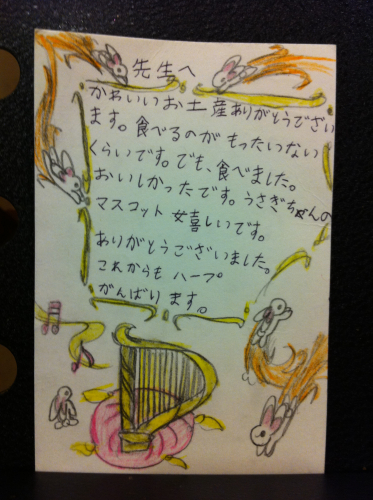 先生へ
かわいいお土産ありがとうござい
ます。食べるのがもったいない
くらいです。でも、食べました。
おいしかったです。うさぎちゃんの
マスコット嬉しいです。
ありがとうございました。
これからもハープ
がんばります。